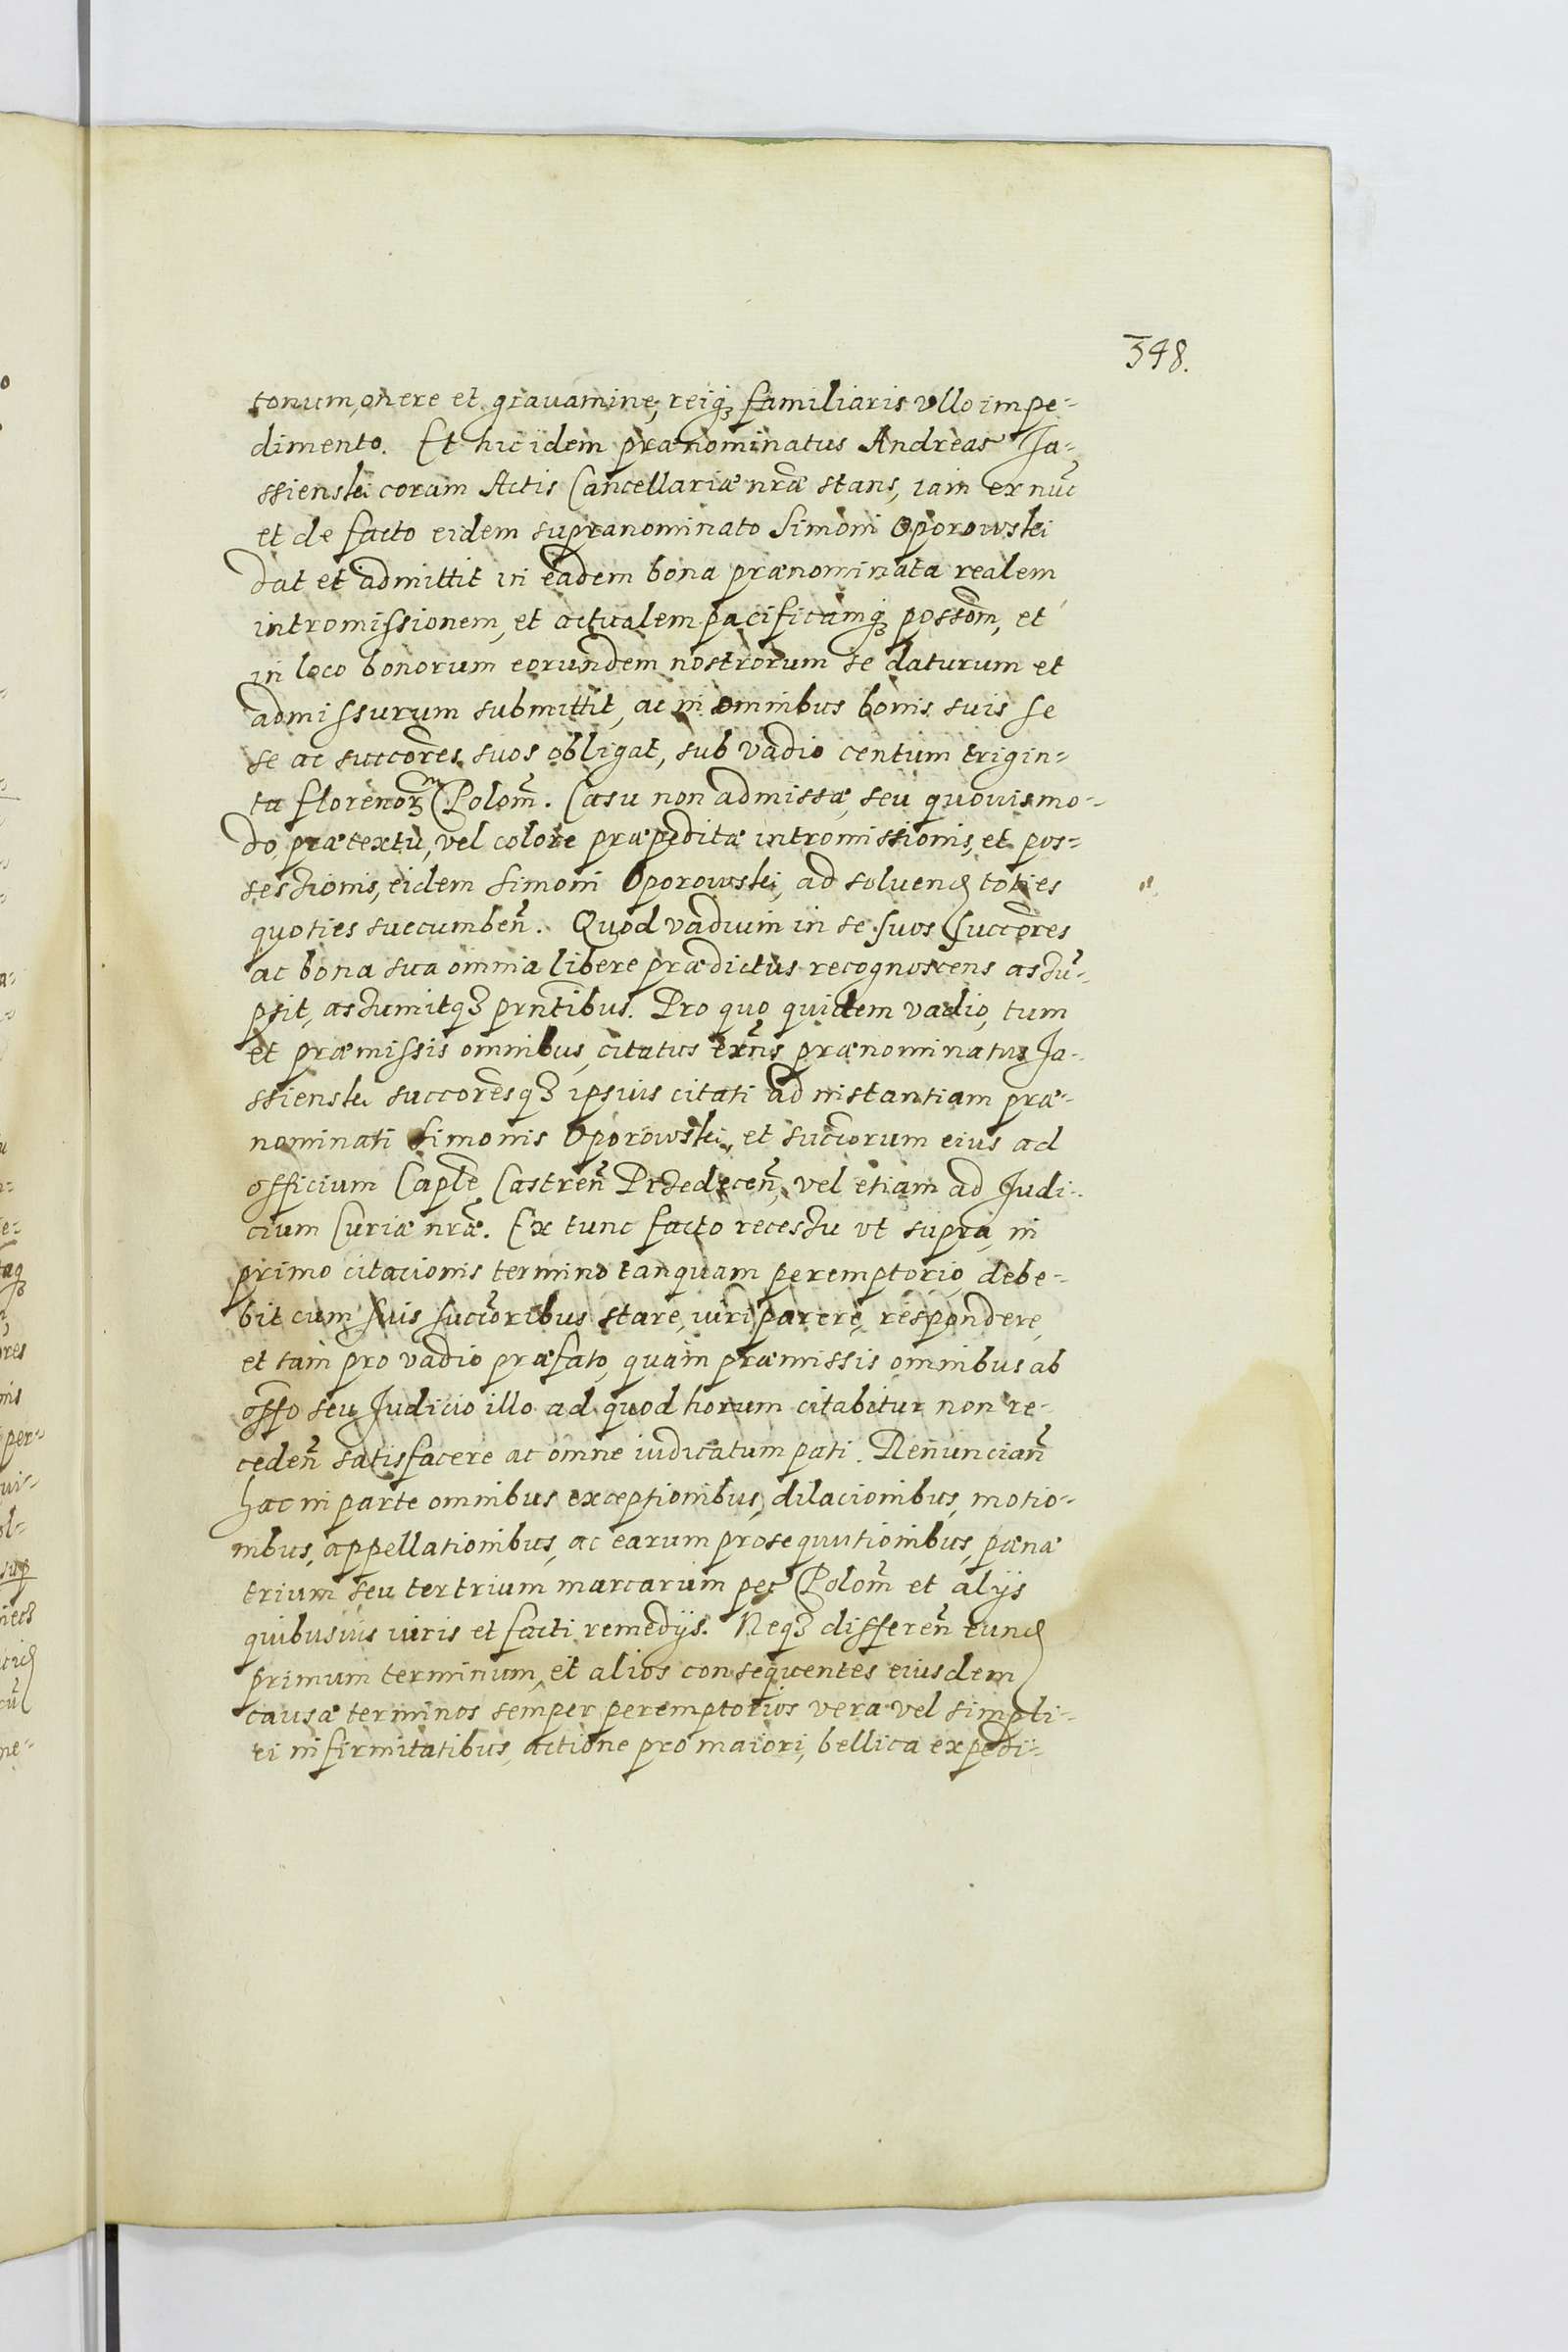 348.
tonum, onere et grauamine, reiq₃ familiaris vllo impe-
dimento. Et hic idem prænominatus Andreas Ja-
ssienski coram Actis Cancellariæ nr̄æ stans, iam ex nūc
et de facto eidem supranominato Simoni Oporowski
dat et admittit in eadem bona prænominata realem
intromissionem, et actualem pacificamq₃ possom̄, et
in loco bonorum eorundem nostrorum se daturum et
admissurum submittit, ac in omnibus bonis suis se
se ac succores suos obligat, sub vadio centum trigin-
ta florenorꝫ m Polom̄. Casu non admissæ, seu quouismo-
do, prætextu, vel colore præpeditæ intromissionis, et pos-
sessionis, eidem Simoni Oporowski, ad soluend toties
quoties succumben̄. Quod vadium in se suos succores
ac bona sua omnia libere prædictus recognoscens assu-
psit, assumitq₃ prn̄tibus. Pro quo quidem vadio, tum
et præmissis omnibus, citatus exn̄s prænominatus Ja-
ssienski succoresq₃ ipsius citati ad instantiam præ-
nominati Simonis Oporowski, et succorum eius ad
officium Caple Castren̄ Prsedecen̄, vel etiam ad Judi-
cium Curiæ nr̄æ. Ex tunc facto recessu vt supra, in
primo citacionis termino tanquam peremptorio, debe-
bit cum suis succoribus stare, iuri parere, respondere,
et tam pro vadio præfato, quam præmissis omnibus ab
offo seu Judicio illo ad quod horum citabitur non re-
ceden̄ satisfacere ac omne iudicatum pati. Renuncian̄
hac in parte omnibus exceptionibus, dilacionibus, motio-
nibus, appellationibus, ac earum prosequutionibus, pænæ
trium seu ter trium marcarum pec Polom̄ et alijs
quibusuis iuris et facti remedijs. Neq₃ differen̄ eund
primum terminum, et alios consequentes eiusdem
causæ terminos semper peremptorios vera vel simpli-
ci infirmitatibus, actione pro maiori, bellica expedi-